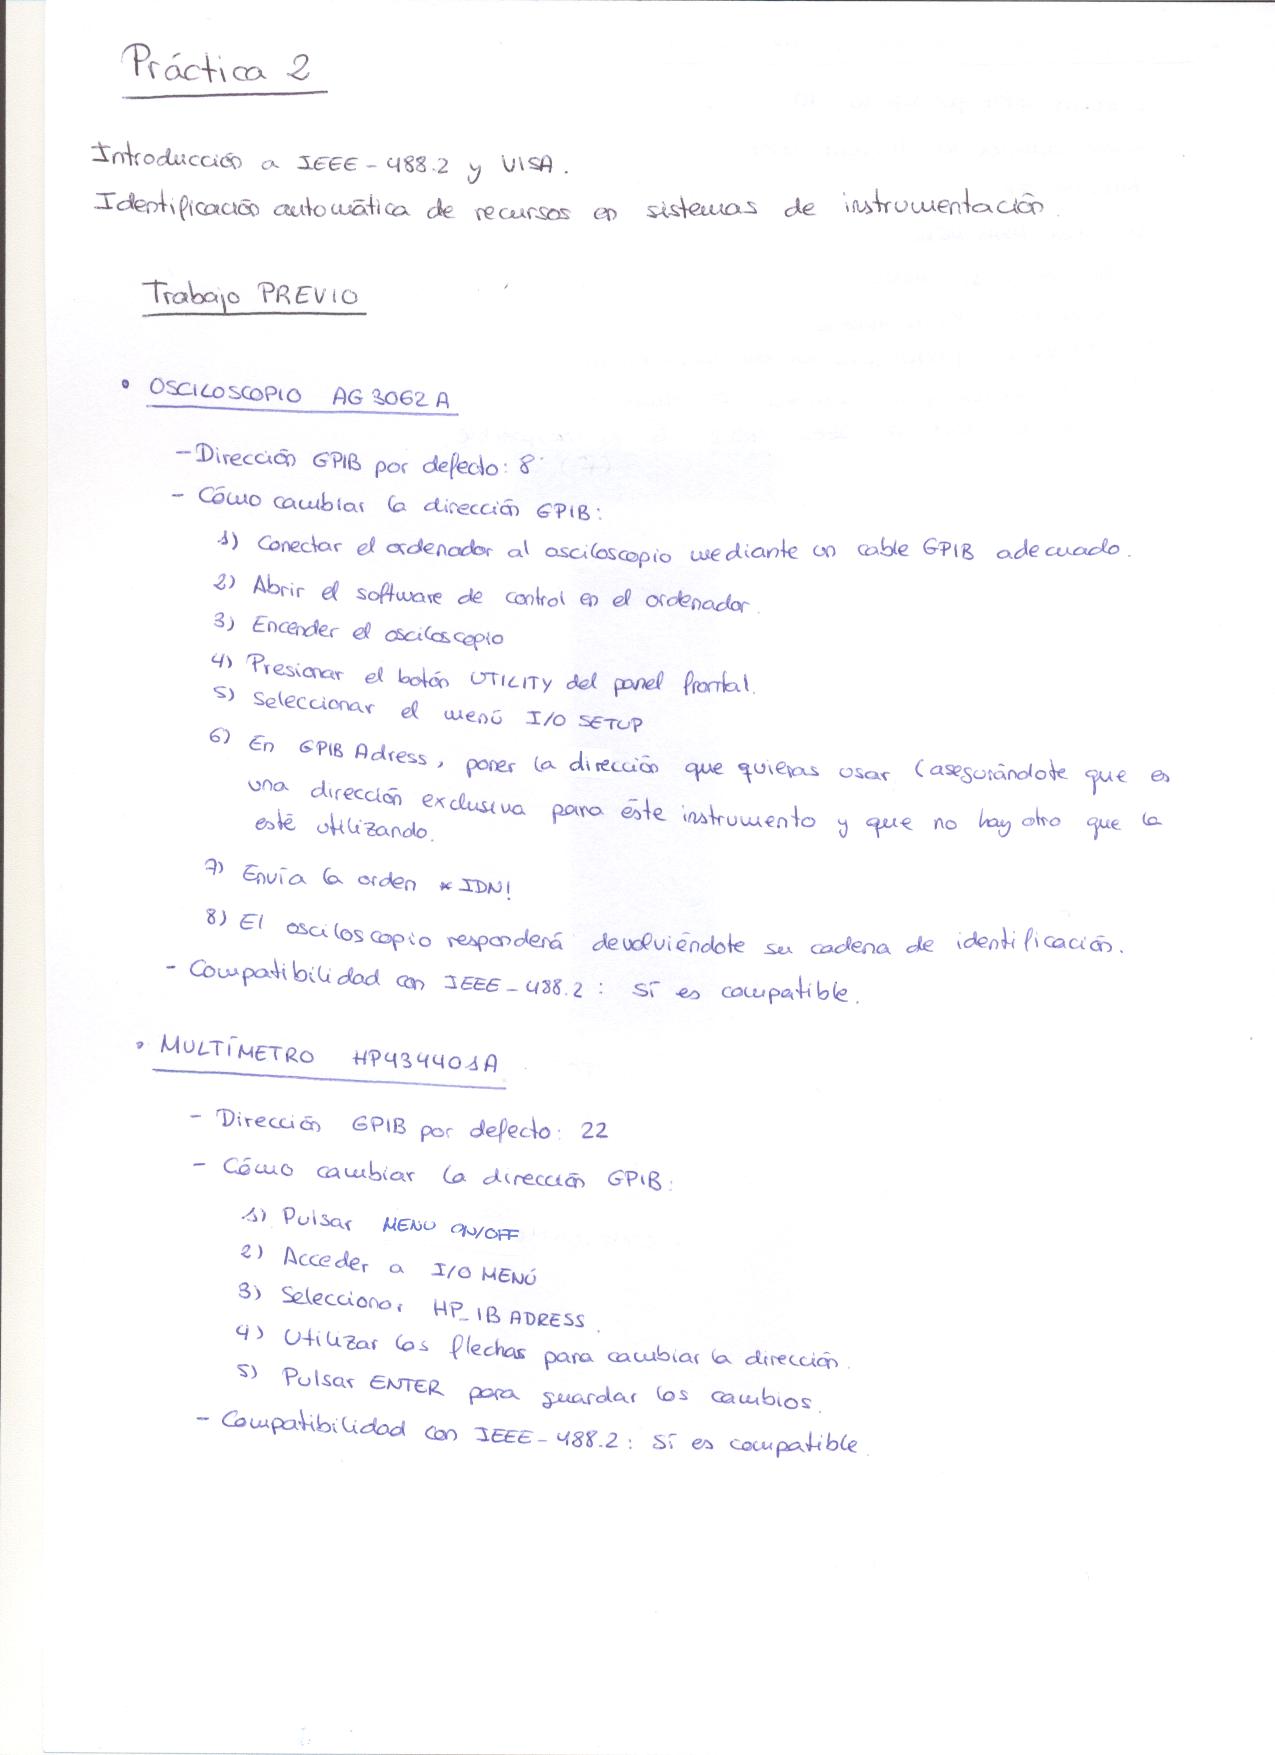 Práctica 2
Introducción a IEEE-488.2 y VISA.
Identificación automática de recursos en sistemas de instrumentación.
Trabajo PREVIO
• OSCILOSCOPIO AG3062A
- Dirección GPIB por defecto: 8
- Cómo cambiar la dirección GPIB:
1) Conectar el ordenador al osciloscopio mediante un cable GPIB adecuado.
2) Abrir el software de control en el ordenador.
3) Encender el osciloscopio
4) Presionar el botón UTILITY del panel frontal.
5) Seleccionar el menú I/O SETUP
6) En GPIB Adress, poner la dirección que quieras usar (asegurándote que es
una dirección exclusiva para éste instrumento y que no hay otro que la
esté utilizando.
7) Envía la orden *IDN!
8) El osciloscopio responderá devolviéndote su cadena de identificación.
- Compatibilidad con IEEE-488.2: Sí es compatible.
• MULTÍMETRO HP434401A
- Dirección GPIB por defecto: 22
- Cómo cambiar la dirección GPIB:
1) Pulsar MENU ON/OFF
2) Acceder a I/O MENÚ
3) Seleccionar HP_IB ADRESS.
4) Utilizar las flechas para cambiar la dirección.
5) Pulsar ENTER para guardar los cambios.
- Compatibilidad con IEEE-488.2: Sí es compatible.